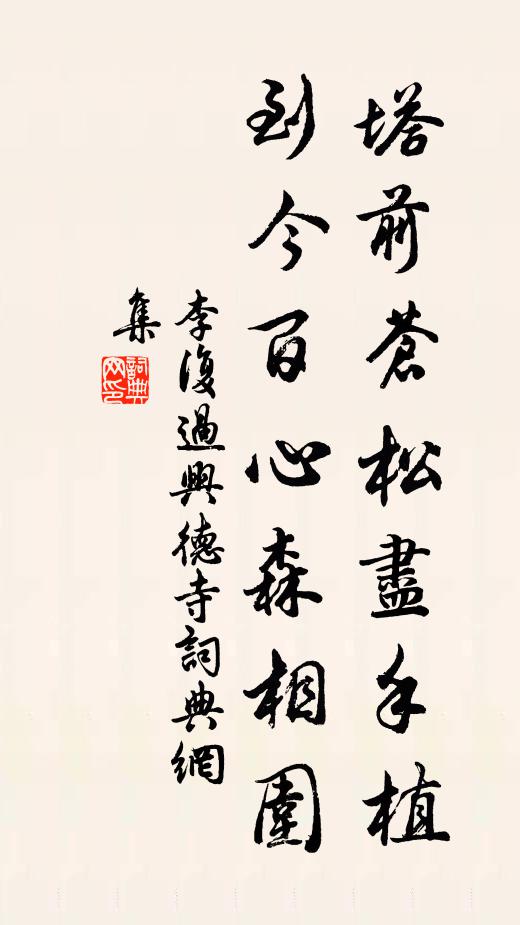 塔前蒼松盡手植
到今百心森相圍
李復過興德寺詞典網
集
詞典網印